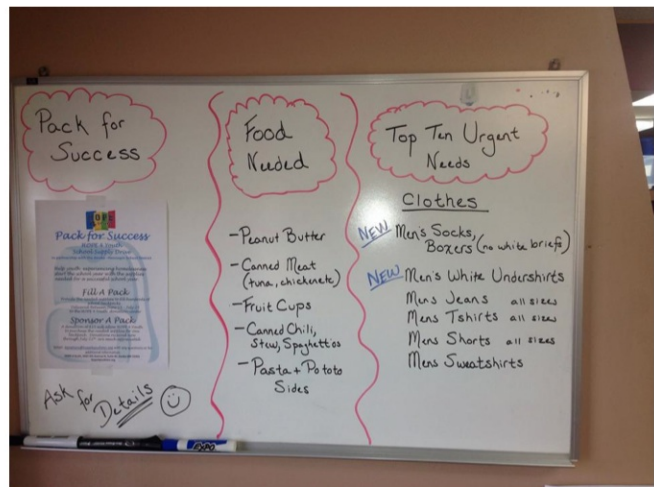 Pack for
Success
Pack for Success
HOPE 4 Youth
School Supply Drive
Fill A Pack
Sponsor A Pack
Ask for
Details
Food
Needed
-Peanut Butter
-Canned Meat
(tuna, chicken etc)
-Fruit Cups
-Canned Chili,
Stew, Spaghettios
-Pasta + Potato
Sides
Top Ten Urgent
Needs
Clothes
NEW Men's Socks,
Boxers (no white briefs)
NEW Men's White Undershirts
Mens Jeans all sizes
Mens Tshirts all sizes
Mens Shorts all sizes
Mens Sweatshirts
EXPO